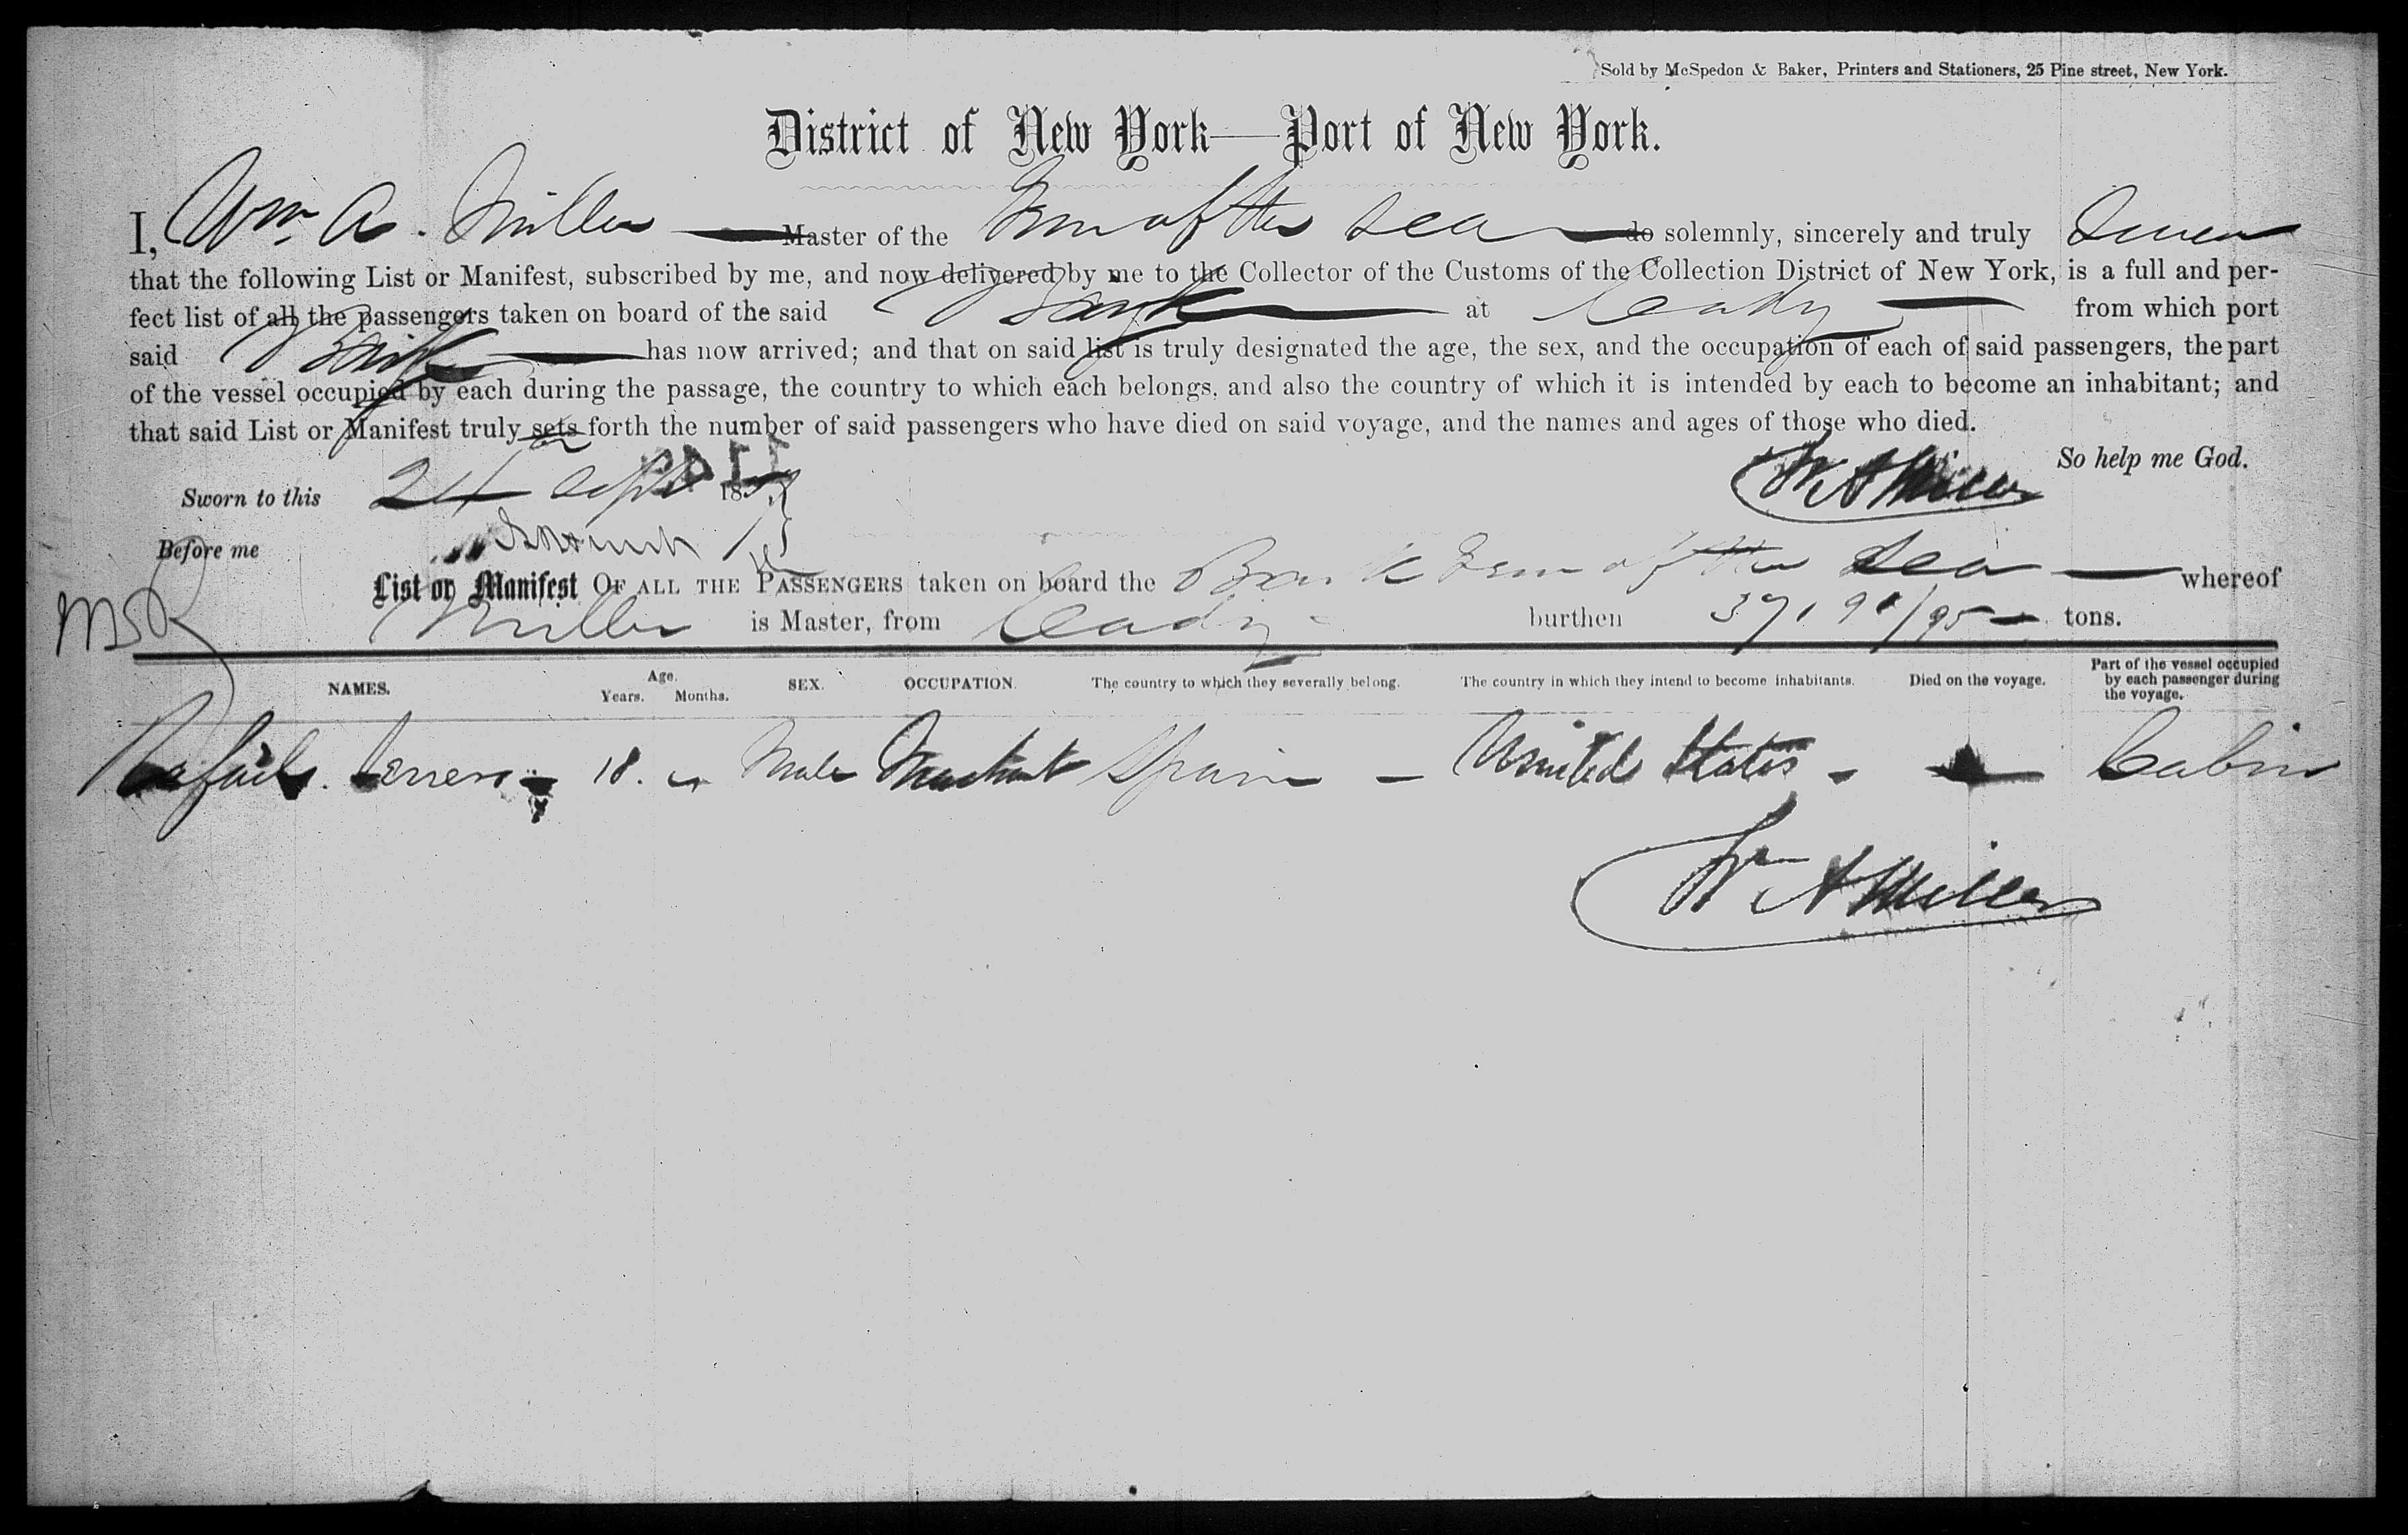 Sold by McSpedon & Baker, Printers and Stationers, 25 Pine street, New York.
District of New York—Port of New York.
I, Wm A. Miller Master of the Gem of the Sea do solemnly, sincerely and truly Swear
that the following List or Manifest, subscribed by me, and now delivered by me to the Collector of the Customs of the Collection District of New York, is a full and per-
fect list of all the passengers taken on board of the said Bark at Cadiz from which port
said Bark has now arrived; and that on said list is truly designated the age, the sex, and the occupation of each of said passengers, the part
of the vessel occupied by each during the passage, the country to which each belongs, and also the country of which it is intended by each to become an inhabitant; and
that said List or Manifest truly sets forth the number of said passengers who have died on said voyage, and the names and ages of those who died.
So help me God.
Sworn to this 24 Sept 185 Wm A Miller
Before me
List or Manifest OF ALL THE PASSENGERS taken on board the Bark Gem of the Sea whereof
Miller is Master, from Cadiz burthen 371 90/95 tons.
NAMES. Age. Years. Months. SEX. OCCUPATION. The country to which they severally belong. The country in which they intend to become inhabitants. Died on the voyage. Part of the vessel occupied by each passenger during the voyage.
18. Male Merchant Spain — United States - Cabin
Wm A Miller